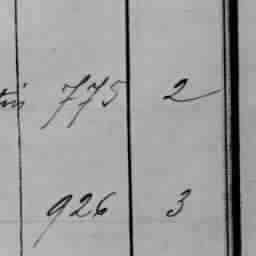 775 2
926 3